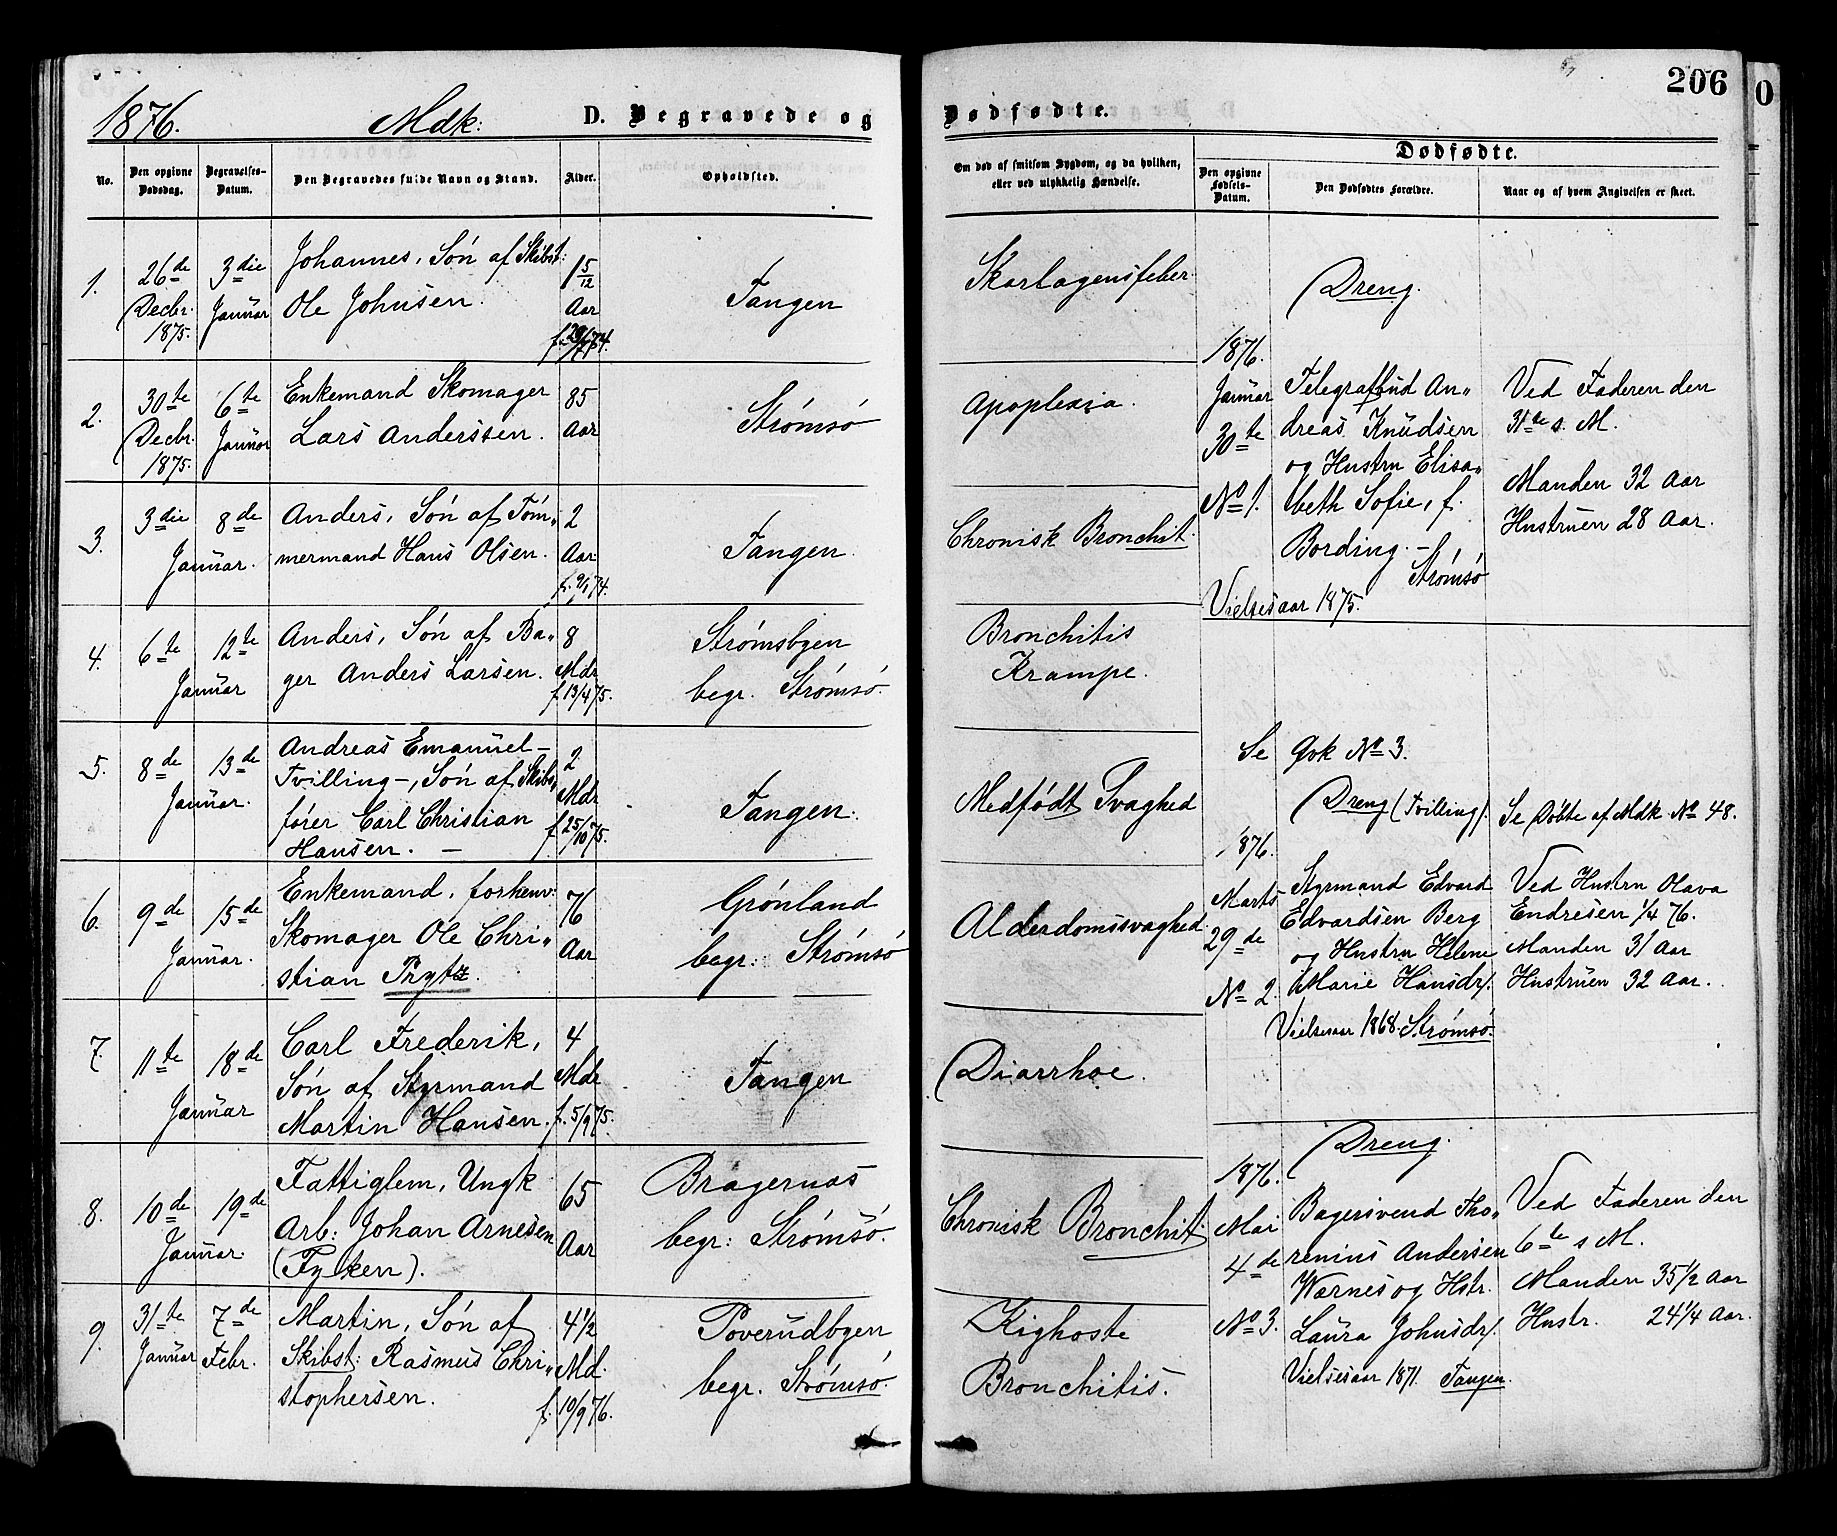 206
0
1876. Mdk: D. Begravede og Dødfødte.
No.
Den opgivne Dødsdag.
Begravelses-Datum.
Den Begravedes fulde Navn og Stand.
Alder.
Opholdsted.
Om død af smitsom Sygdom, og da hvilken,
eller ved ulykkelig Hændelse.
Dødfødte.
Den opgivne Fødsels-Datum.
Den Dødfødtes Forældre.
Naar og af hvem Angivelsen er skeet.
1.
26de Decbr. 1875.
3die Januar
Johannes, Søn af Skibst:
Ole Johnsen.
1 5/12 Aar
Tangen
Skarlagensfeber.
2.
30te Decbr. 1875.
6te Januar
Enkemand Skomager
Lars Anderssen.
85 Aar
Strømsø
Apoplexia.
3.
3die 8de
Januar.
Anders, Søn af Töm„
mermand Hans Olsen.
2 Aar
f. 9/1 74.
Tangen.
Chronisk Bronchit.
4.
6te 12te
Januar
Anders, Søn af Ba„
ger Anders Larsen.
8 Mdr
f. 13/4 75.
Strømsbyen
begr. Strømsø.
Bronchitis
Krampe.
5.
8de 13de
Januar.
Andreas Emanuel –
Tvilling –, Søn af Skibs„
fører Carl Christian
Hansen. –
2 Mdr
f. 25/10 75.
Tangen.
Medfødt Svaghed
6.
9de 15de
Januar.
Enkemand, forhenv:
Skomager Ole Chri„
stian Prytz.
76 Aar
Grønland
begr: Strømsø
Alderdomssvaghed.
7.
11te 18de
Januar
Carl Frederik,
Søn af Styrmand
Martin Hansen.
4 Mdr
f. 5/9 75.
Tangen
Diarrhoe.
8.
10de 19de
Januar.
Fattiglem, Ungk
Arb: Johan Arnesen
(Fyken).
65 Aar
Bragernæs
begr: Strømsø.
Chronisk Bronchit.
9.
31te Januar
7de Febr.
Martin, Søn af
Skibst: Rasmus Chri„
stophersen.
4 1/2 Md.
f. 19/9 76.
Poverudbyen
begr. Strømsø.
Kighoste
Bronchitis.
Dreng.
1876.
Januar
30te
No 1.
Telegrafbud An„
dreas Knudsen
og Hustru Elisa„
beth Sofie, f.
Bording. –
Strømsø
Vielsesaar 1875.
Ved Faderen den
31te s. M.
Manden 32 Aar
Hustruen 28 Aar.
Se Gvk No 3.
Dreng (Tvilling).
1876.
Marts
29de
No 2.
Styrmand Edvard
Edvardsen Berg
og Hustru Helene
Marie Hansdr.
Vielsesaar 1868. Strømsø.
Se Døbte af Mdk No 48.
Ved Hustru Olava
Endresen 1/4 76.
Manden 31 Aar
Hustruen 32 Aar.
Dreng.
1876.
Mai
4de
No 3.
Bagersvend Tho„
renius Andersen
Wærnes og Hstr.
Laura Johnsdr.
Vielsesaar 1871. Tangen.
Ved Faderen den
6te s M.
Manden 35 1/2 Aar
Hustr. 24 1/4 Aar.